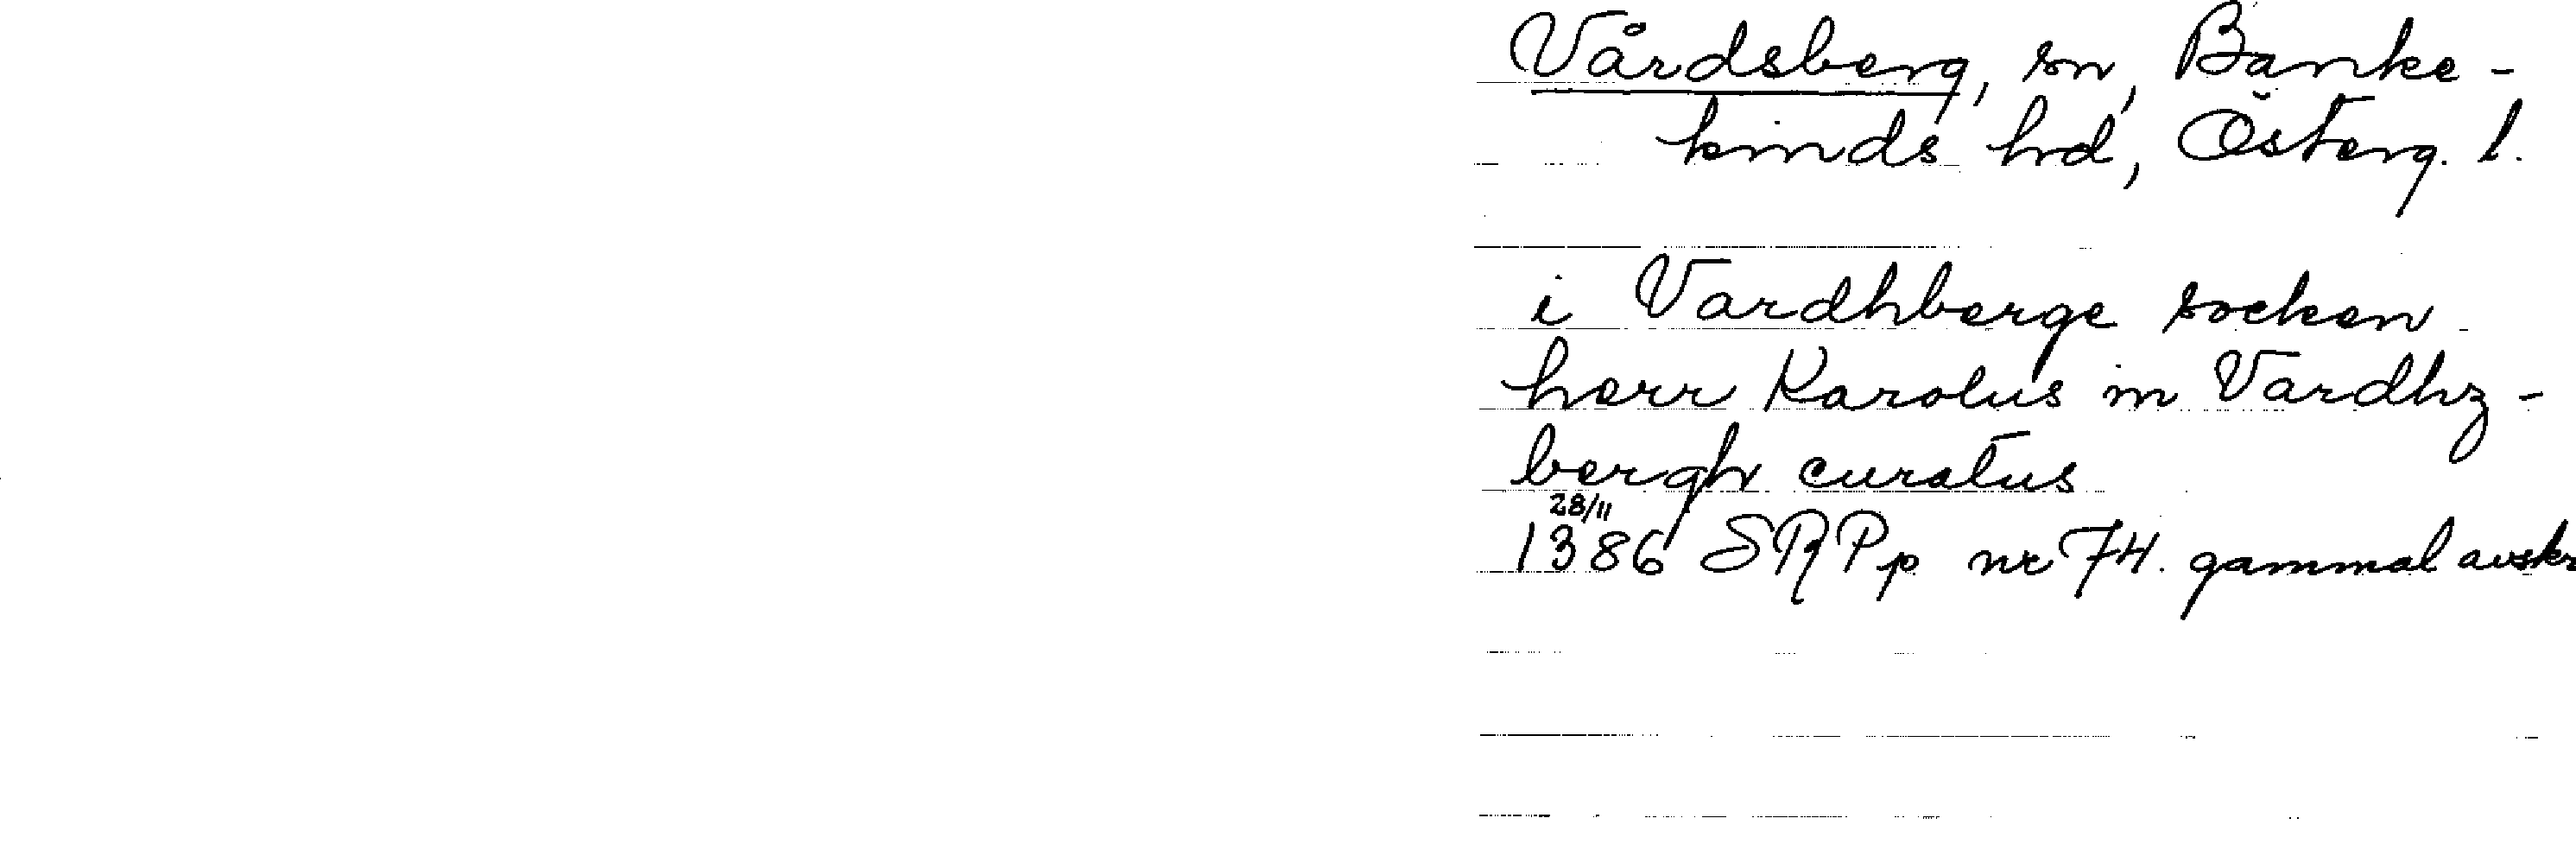 Vårdsberg, sn, Banke-
kinds hd, Österg. l.
i Vardhberge socken
herr Karolus in Vardhz-
bergh curatus
28/11
1386 SRPp nr 74. gammal avskr